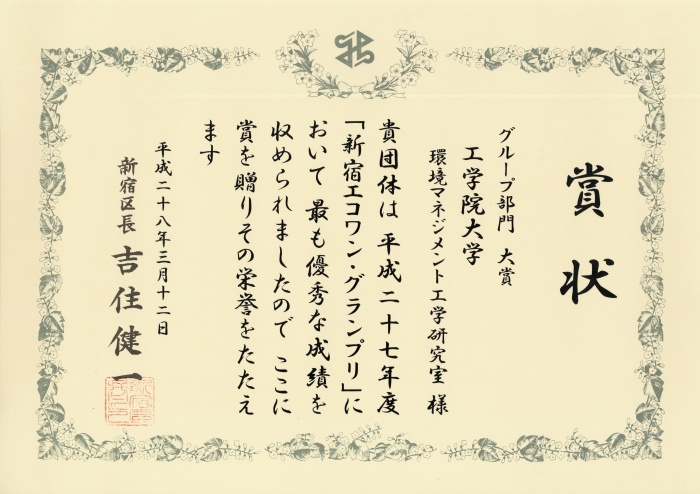 賞状
グループ部門 大賞
工学院大学
環境マネジメント工学研究室 様
貴団体は 平成二十七年度
「新宿エコワン・グランプリ」に
おいて 最も優秀な成績を
収められましたので ここに
賞を贈りその栄誉をたたえ
ます
平成二十八年三月十二日
新宿区長 吉住健一